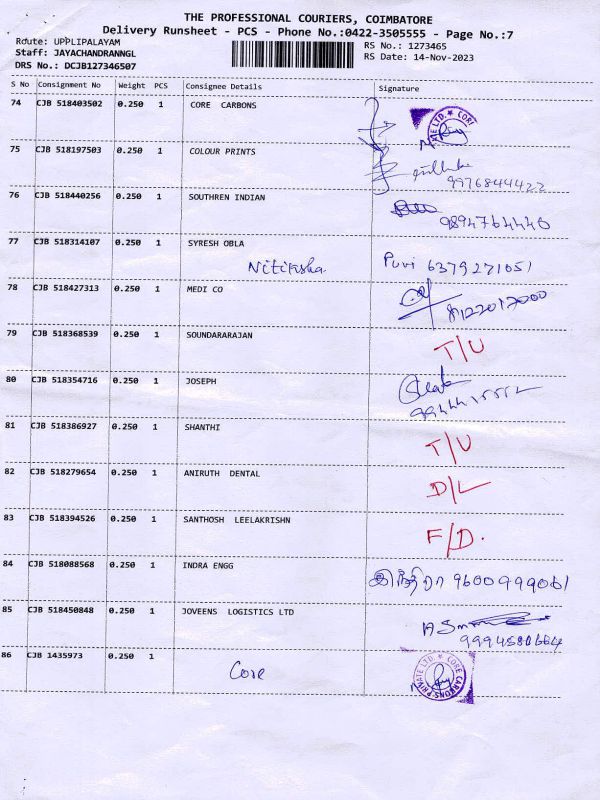 THE PROFESSIONAL COURIERS, COIMBATORE
Delivery Runsheet - PCS - Phone No.:0422-3505555 - Page No.:7
Route: UPPLIPALAYAM
Staff: JAYACHANDRANNGL
DRS No.: DCJB127346507
RS No.: 1273465
RS Date: 14-Nov-2023
S No Consignment No Weight PCS Consignee Details Signature
74 CJB 518403502 0.250 1 CORE CARBONS
75 CJB 518197503 0.250 1 COLOUR PRINTS 9976844422
76 CJB 518440256 0.250 1 SOUTHREN INDIAN 9894764440
77 CJB 518314107 0.250 1 SYRESH OBLA
Nitiksha Puvi 6379271051
78 CJB 518427313 0.250 1 MEDI CO 8122017000
79 CJB 518368539 0.250 1 SOUNDARARAJAN T/U
80 CJB 518354716 0.250 1 JOSEPH
81 CJB 518386927 0.250 1 SHANTHI T/U
82 CJB 518279654 0.250 1 ANIRUTH DENTAL D/L
83 CJB 518394526 0.250 1 SANTHOSH LEELAKRISHN F/D.
84 CJB 518088568 0.250 1 INDRA ENGG இந்திரா 9600999061
85 CJB 518450848 0.250 1 JOVEENS LOGISTICS LTD
86 CJB 1435973 0.250 1 Core CORE CARBONS PRIVATE LTD